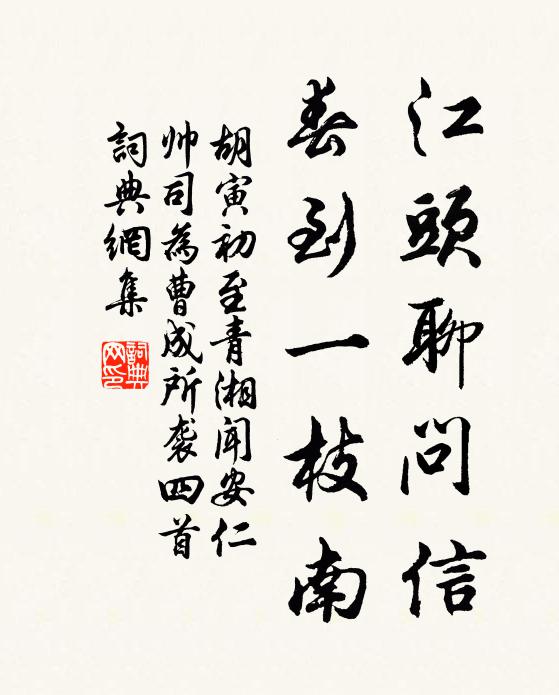 江頭聊問信
春到一枝南
胡寅初至青湘闻安仁
帅司為曹成所袭四首
詞典網集
詞典网印